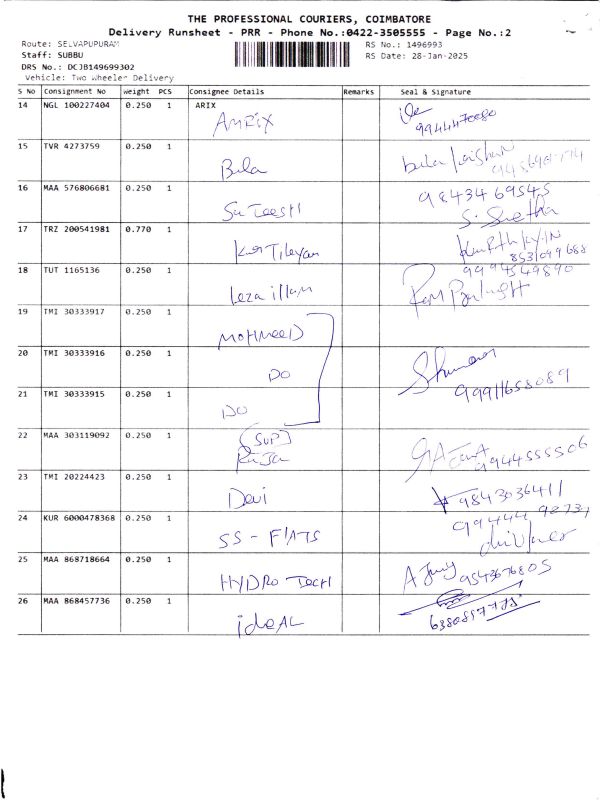 THE PROFESSIONAL COURIERS, COIMBATORE
Delivery Runsheet - PRR - Phone No.:0422-3505555 - Page No.:2
Route: SELVAPUPURAM RS No.: 1496993
Staff: SUBBU RS Date: 28-Jan-2025
DRS No.: DCJB149699302
Vehicle: Two Wheeler Delivery
S No Consignment No Weight PCS Consignee Details Remarks Seal & Signature
14 NGL 100227404 0.250 1 ARIX
AMRIX
9944470080
15 TVR 4273759 0.250 1
Bala
16 MAA 576806681 0.250 1 98434 69545
17 TRZ 200541981 0.770 1
18 TUT 1165136 0.250 1 9994549890
Leza illam
19 TMI 30333917 0.250 1
MOHMEED
20 TMI 30333916 0.250 1
DO
99911658089
21 TMI 30333915 0.250 1
DO
22 MAA 303119092 0.250 1 [SUP]
Raja 9944555506
23 TMI 20224423 0.250 1
Devi 9843036411
24 KUR 6000478368 0.250 1
SS - FlATS
25 MAA 868718664 0.250 1
HYDRO TECH 9543676805
26 MAA 868457736 0.250 1
ideAL 6380857775